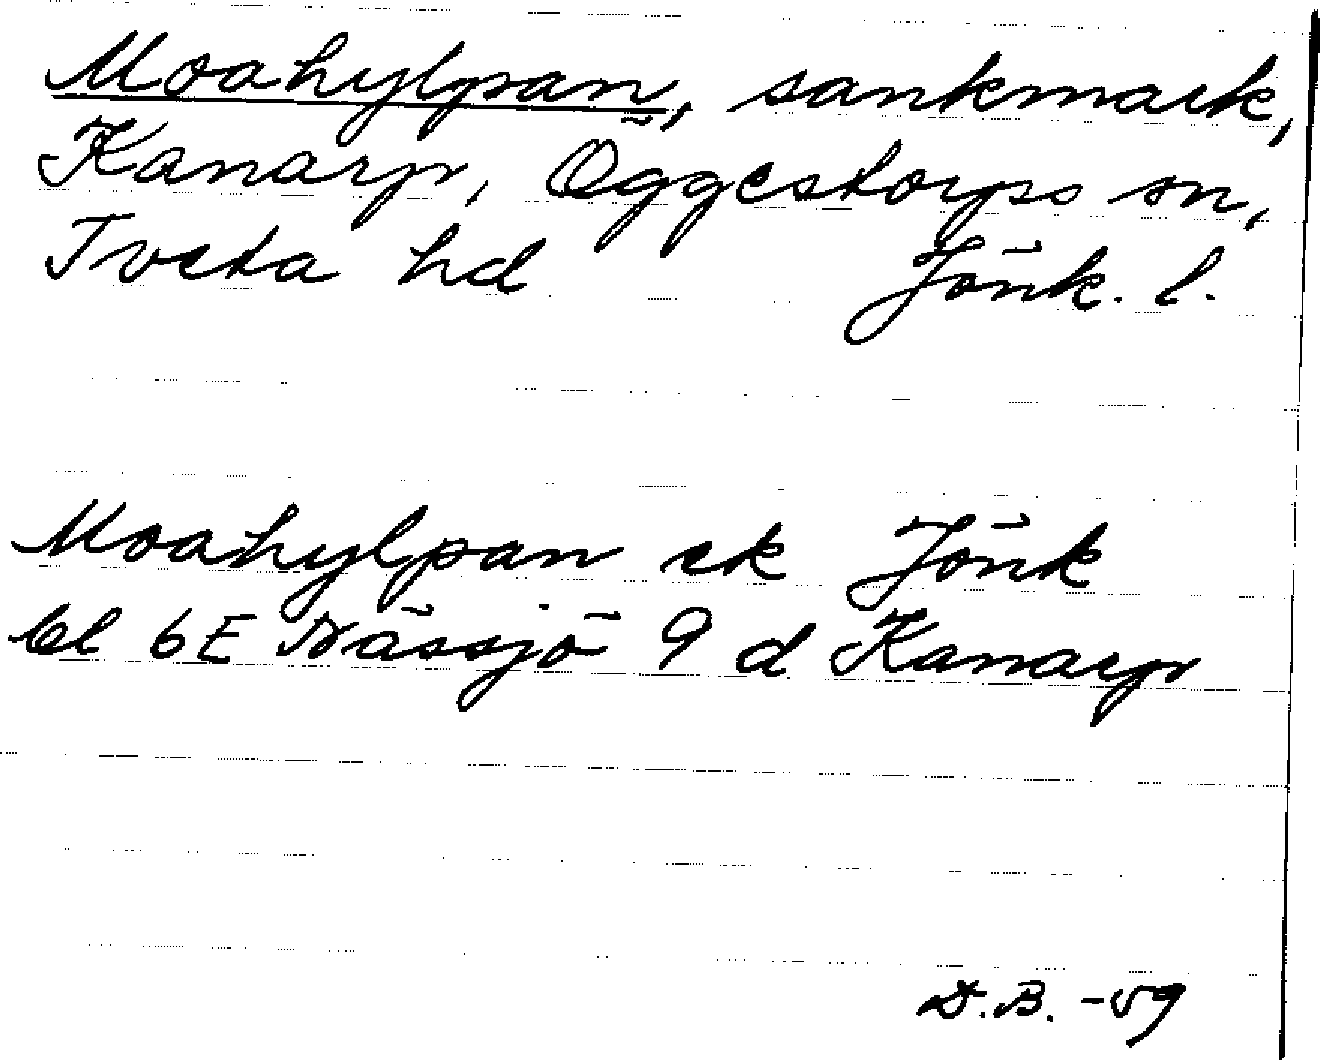 Moahylpan, sankmark,
Kanarp, Öggestorps sn,
Tveta hd Jönk. l.
Moahylpan ek Jönk
bl 6E Nässjö 9 d Kanarp
D.B. -59